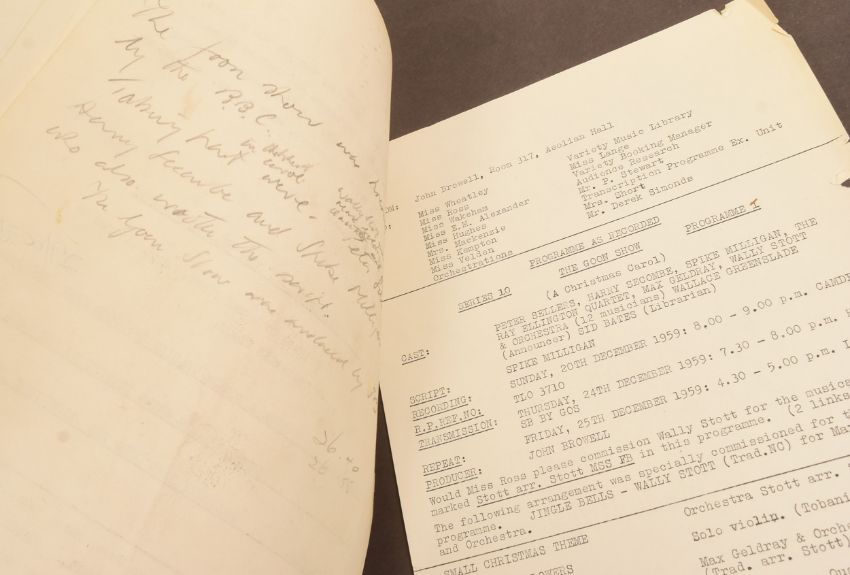 The Goon Show was
by the B.B.C.
Taking part were.
Harry Secombe and Spike
who also writes the script.
The Goon Show was produced by
26
OM: John Browell, Room 317, Aeolian Hall
O: Miss Wheatley Variety Music Library
Miss Ross Miss Lange
Miss Wakeham Variety Booking Manager
Miss E.M. Alexander Audience Research
Miss Hughes Mr. P. Stewart
Mrs. Mackenzie Transcription Programme Ex. Unit
Miss Kempton Mrs. Short
Miss Velden Mr. Derek Simonds
Orchestrations
PROGRAMME AS RECORDED
SERIES 10 THE GOON SHOW PROGRAMME I
(A Christmas Carol)
CAST: PETER SELLERS, HARRY SECOMBE, SPIKE MILLIGAN, THE
RAY ELLINGTON QUARTET, MAX GELDRAY, WALLY STOTT
& ORCHESTRA (12 musicians) WALLACE GREENSLADE
(Announcer) SID BATES (Librarian)
SCRIPT: SPIKE MILLIGAN
RECORDING: SUNDAY, 20TH DECEMBER 1959: 8.00 - 9.00 p.m. CAMDE
R.P.REF.NO: TLO 3710
TRANSMISSION: THURSDAY, 24TH DECEMBER 1959: 7.30 - 8.00 p.m.
SB BY GOS
REPEAT: FRIDAY, 25TH DECEMBER 1959: 4.30 - 5.00 p.m. L
PRODUCER: JOHN BROWELL
Would Miss Ross please commission Wally Stott for the musica
marked Stott arr. Stott MSS FB in this programme. (2 links
The following arrangement was specially commissioned for th
programme. JINGLE BELLS - WALLY STOTT (Trad.NC) for Ma
and Orchestra.
SMALL CHRISTMAS THEME Orchestra Stott arr.
LOWERS Solo violin. (Tobani
Max Geldray & Orche
(Trad. arr. Stott)